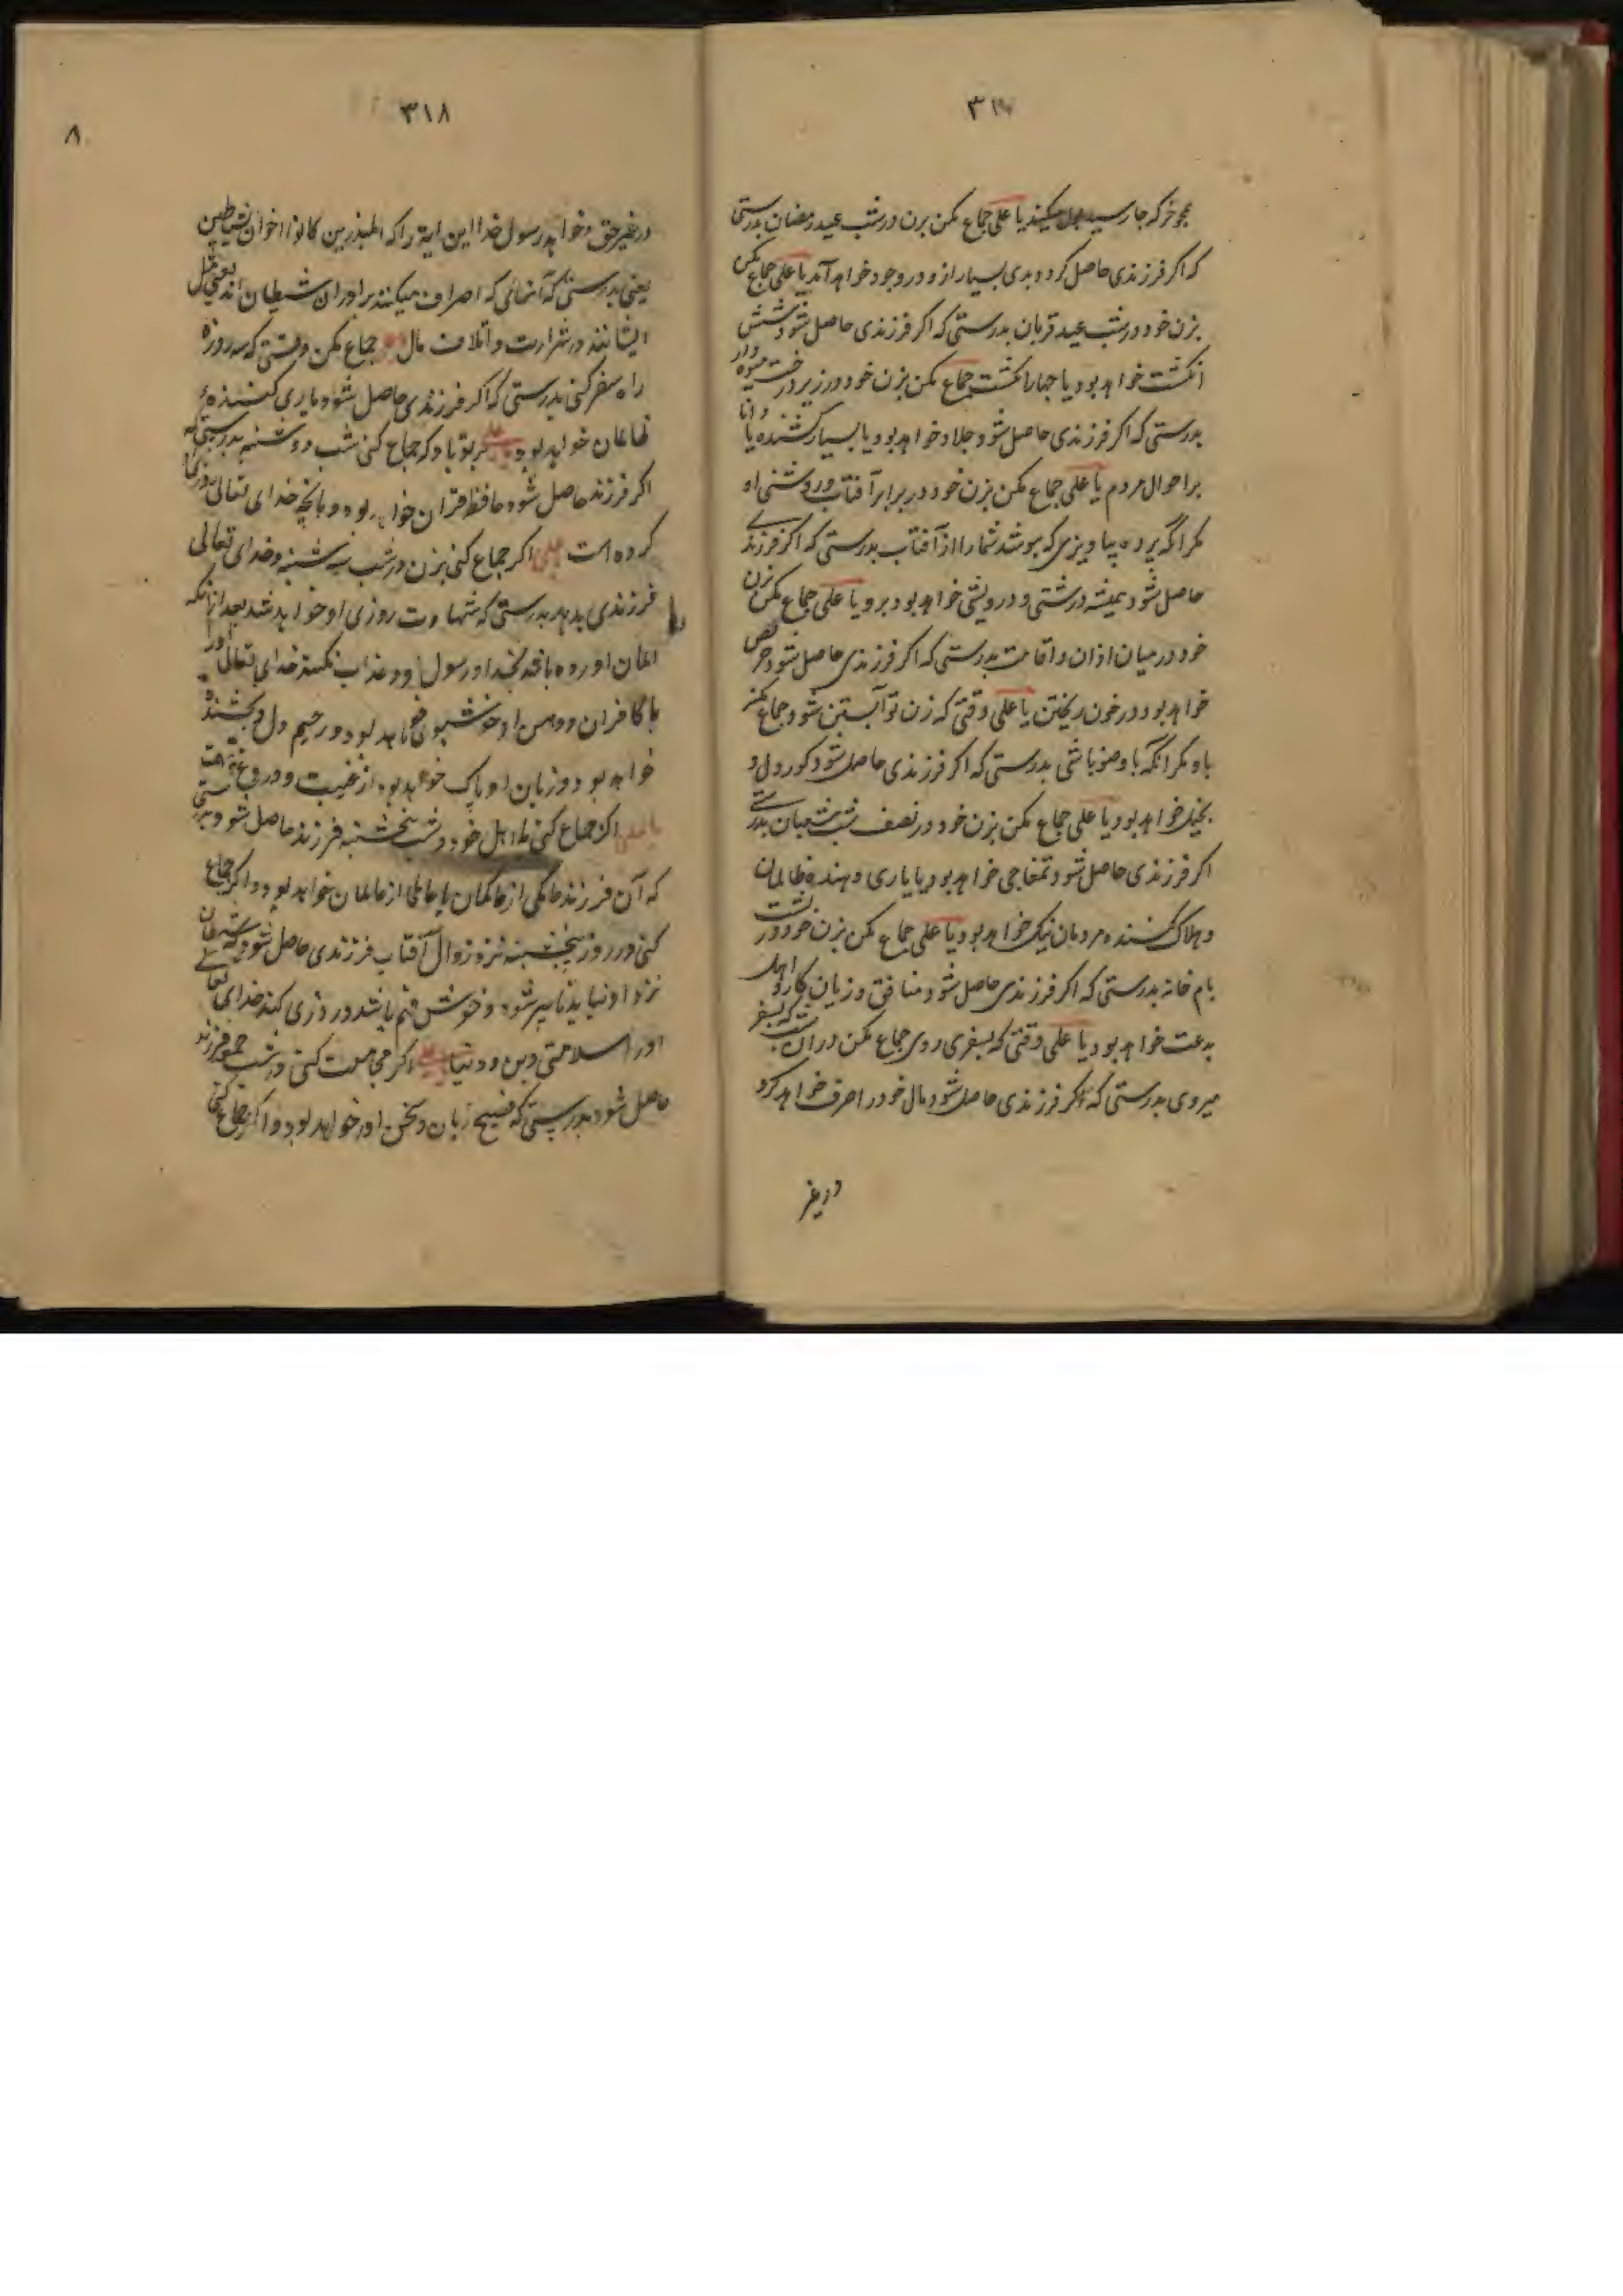 ۳۱۷
همچو خر که جا رسید بول میکند یا علی جماع مکن بزن در شب عید رمضان بدرستی
که اکر فرزندی حاصل کردد بدی بسیار از و در وجود خواهد آمد یا علی جماع مکن
بزن خود در شب عید قربان بدرستی که اکر فرزندی حاصل شود شش
انکشت خواهد بود یا چهار انکشت جماع مکن بزن خود در زیر درخت میوه دار
بدرستی که اکر فرزندی حاصل شود جلاد خواهد بود یا بسیار کشنده یا دانا
بر احوال مردم یا علی جماع مکن بزن خود در برابر آفتاب و روشنی او
مکر آنکه پرده بیاویزی که بپوشد شما را از آفتاب بدرستی که اکر فرزندی
حاصل شود همیشه در شتی و درویشی خواهد بود برو یا علی جماع مکن بزن
خود در میان اذان و اقامت بدرستی که اکر فرزندی حاصل شود حریص
خواهد بود در خون ریختن یا علی وقتی که زن تو آبستن شود جماع مکن
باو مکر آنکه با وضو باشی بدرستی که اکر فرزندی حاصل شود کور دل و
بخیل خواهد بود یا علی جماع مکن بزن خود در نصف شب شعبان بدرستی
اکر فرزندی حاصل شود تمغاجی خواهد بود یا یاری دهنده ظالمان
و هلاک کننده مردمان نیک خواهد بود یا علی جماع مکن بزن خود در پشت
بام خانه بدرستی که اکر فرزندی حاصل شود منافق و زیان کار و اهل
بدعت خواهد بود یا علی وقتی که بسفری روی جماع مکن در آن شب که بسفر
میروی بدرستی که اکر فرزندی حاصل شود مال خود را صرف خواهد کرد
در غیر
۳۱۸
۸
در غیر حق و خواند رسول خدا این ایة را که المبذرین کانوا اخوان الشیاطین
یعنی بدرستی که آنهائی که اصراف میکنند برادران شیطان اند یعنی مثل
ایشانند در شرارت و اتلاف مال جماع مکن وقتی که سه روزه
راه سفر کنی بدرستی که اکر فرزندی حاصل شود یاری کننده
ظالمان خواهد بود یا علی بر تو باد که جماع کنی شب دوشنبه بدرستی که
اکر فرزند حاصل شود حافظ قران خواهد بود و بانچه خدای تعالی روزی
کرده است یا علی اکر جماع کنی بزن در شب سه شنبه و خدای تعالی
فرزندی بدهد بدرستی که شهادت روزی او خواهد شد بعد از آنکه
ایمان اورده باشد بخدا و رسول او و عذاب نکند خدای تعالی او را
با کافران و دهن او خوشبوی خواهد بود و رحیم دل و بخشنده
خواهد بود و زبان او پاک خواهد بود از غیبت و دروغ و تهمت
یا علی اکر جماع کنی با اهل خود در شب پنجشنبه فرزند حاصل شود بدرستی
که آن فرزند حاکمی از حاکمان یا عالمی از عالمان خواهد بود و اکر جماع
کنی در روز پنجشنبه نزد زوال آفتاب فرزندی حاصل شود که شیطان
نزد او نیاید تا پیر شود و خوش فهم باشد و روزی کند خدای تعالی
او را سلامتی دین و دنیا یا علی اکر مجامعت کنی در شب جمعه فرزند
حاصل شود بدرستی که فصیح زبان و سخن اور خواهد بود و اکر جماع کنی